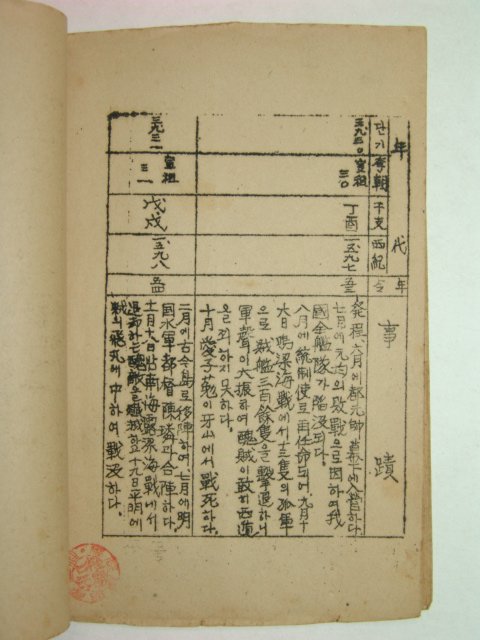 年代
단기
李朝
干支
西紀
年
事蹟
三九三〇
宣祖
三〇
丁酉
一五九七
五三
發程. 六月에 都元帥 幕下에 入營하다.
七月에 元均의 敗戰으로 因하여 我
國全艦隊가 陷沒되다.
八月에 統制使로 再任命되어, 九月十
六日 鳴梁海戰에서 十三隻의 孤軍
으로 敵艦三百餘隻을 擊退하니
軍聲이 大振하여 醜賊이 敢히 西進
을 꾀하지 못하다.
十月 愛子葂이 牙山에서 戰死하다.
三九三一
宣祖
三一
戊戌
一五九八
五四
二月에 古今島로 移陣하여, 七月에 明
國水軍都督陳璘과 合陣하다.
十一月十八日 南海露梁海戰에서
하는 醜敵을 殲滅하고 十九日平明에
敵의 飛丸에 中하여 戰沒하다.